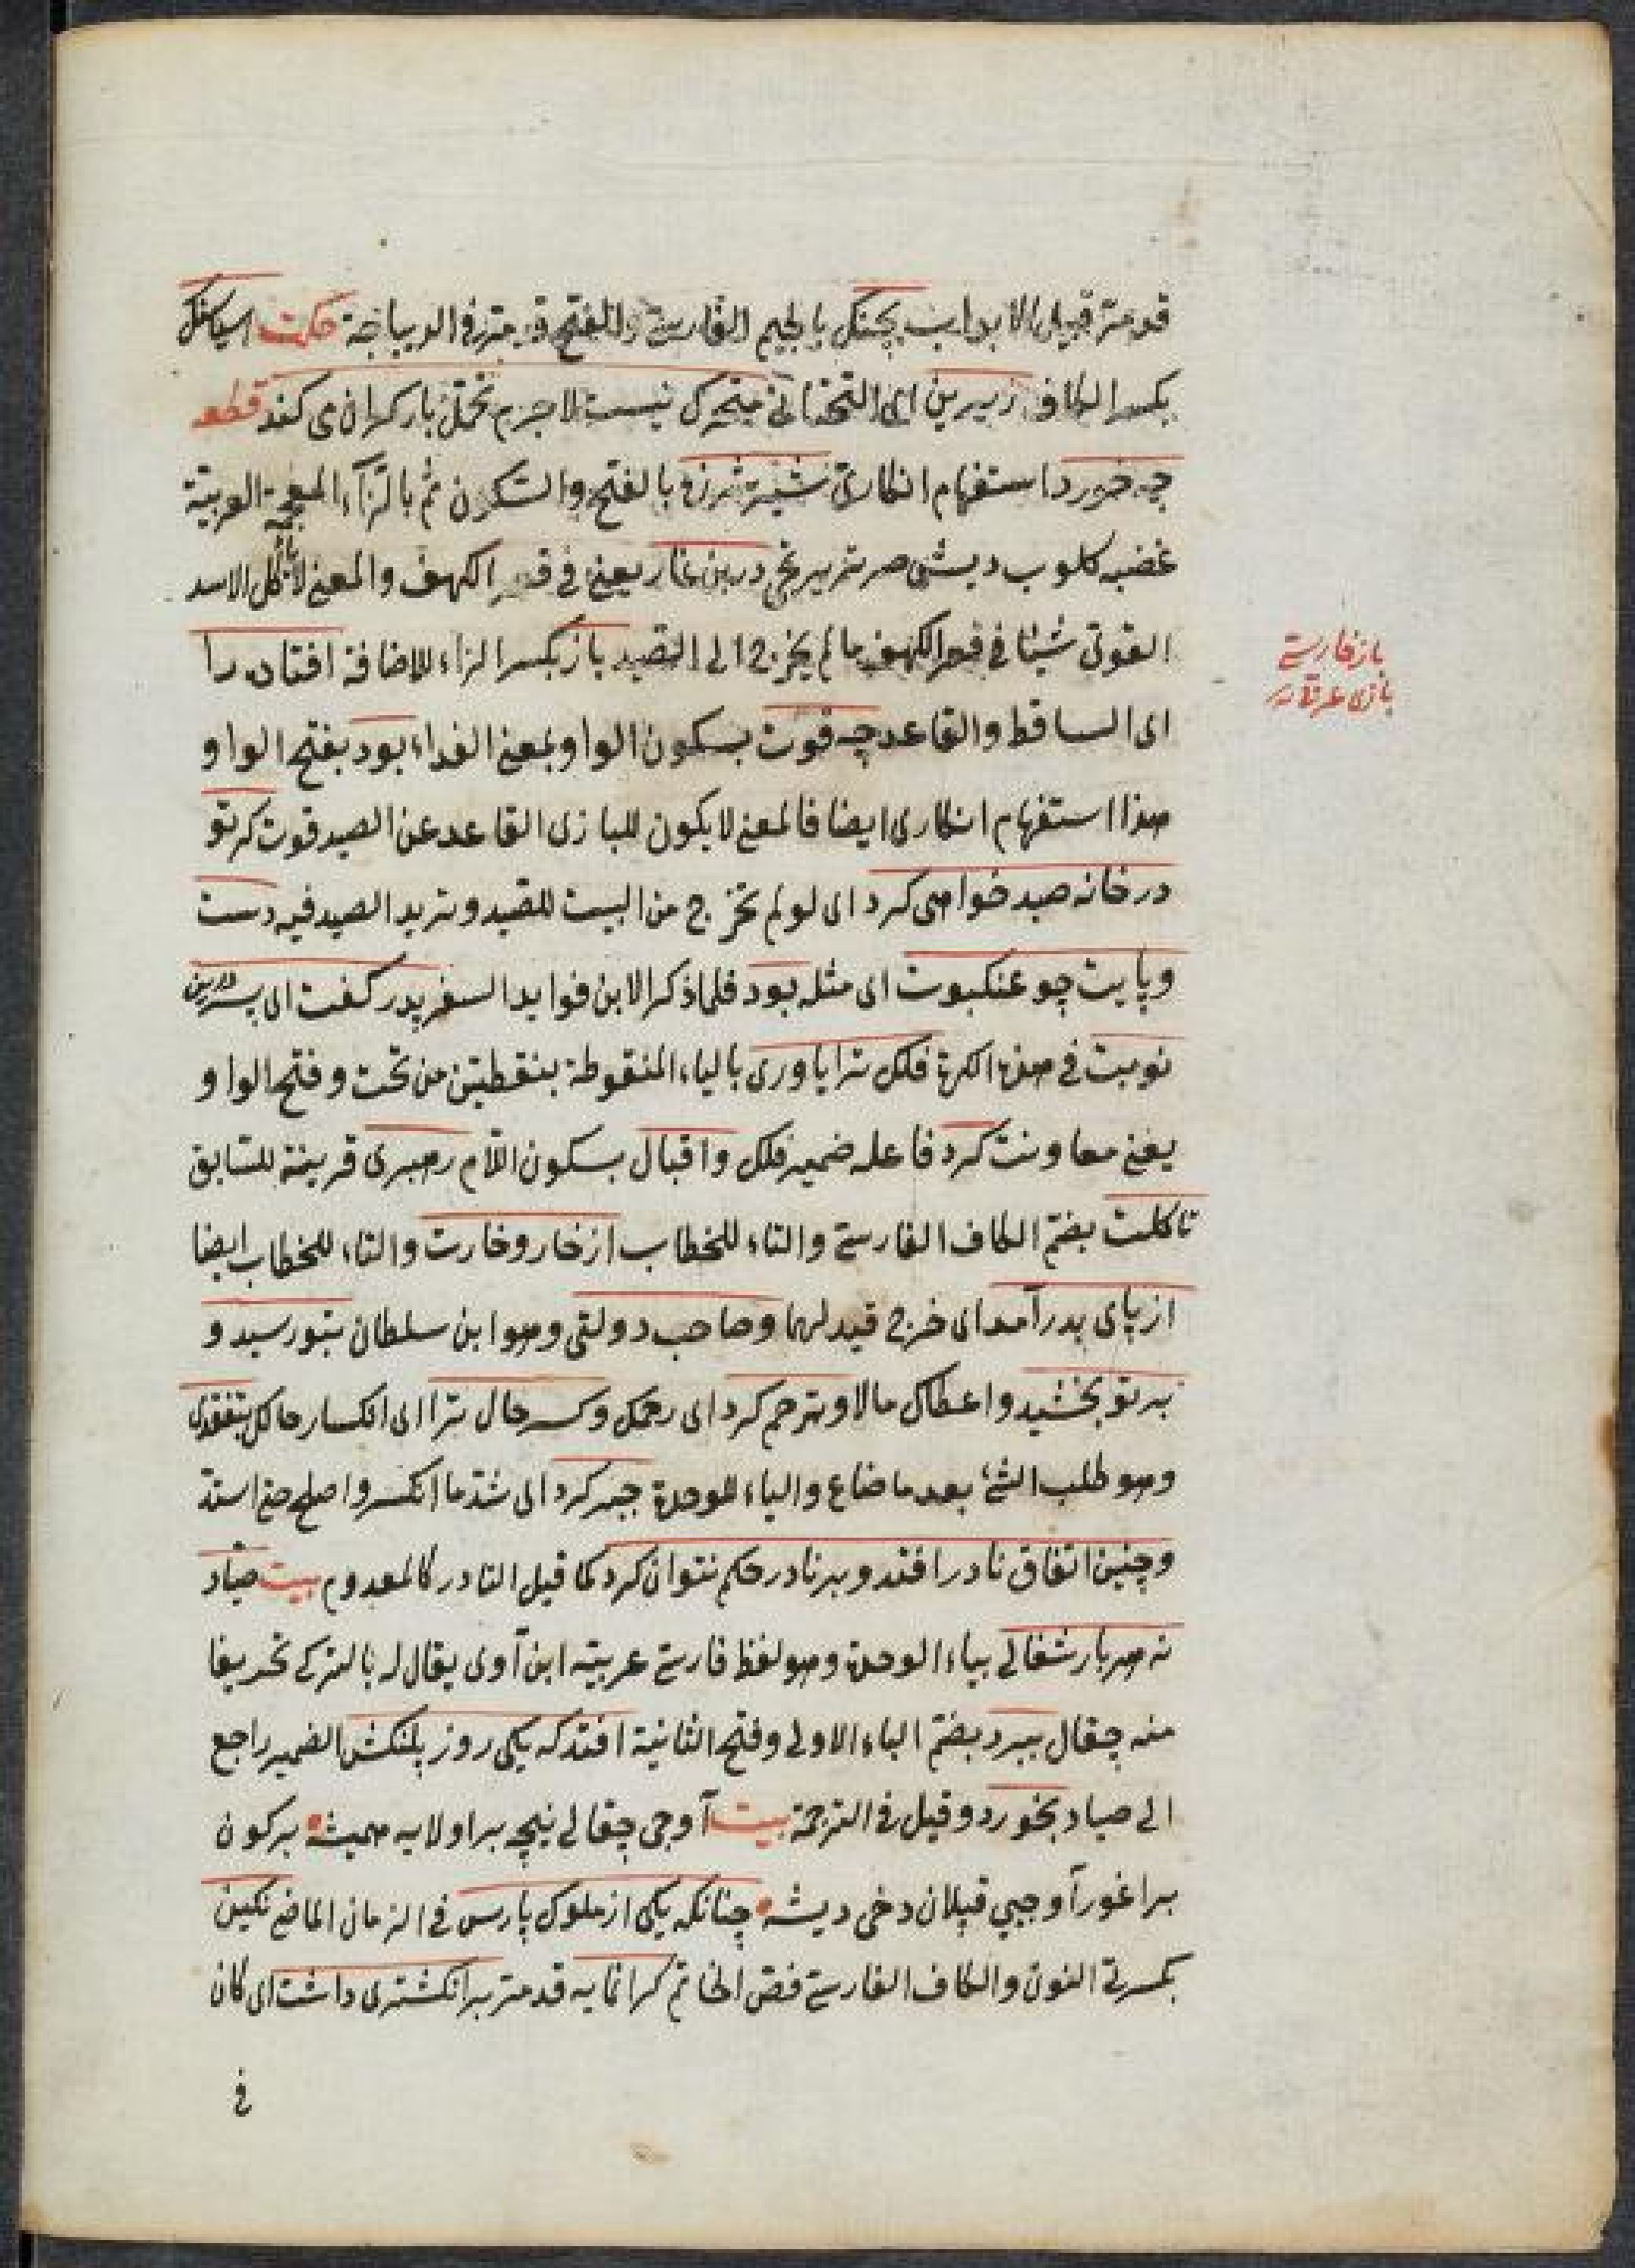 قد مر قبيل الابواب بچنك بالجيم الفارسية والفتح قد مر في الديباجة حكمت آسياسنك
بكسر الكاف زيرين اى التحتانى متحرك نيست لاجرم تحمل بار كران مى كند قطعه
چه خورد استفهام انكارى شير شرزه بالفتح والسكون ثم بالزاء المعجمة العربية
غضبه كلوب ديشى صرتر يرتجى در بن غار يعنى فى قعر الكهف والمعنى لا يأكل الاسد
القوى شيئا فى قعر الكهف ما لم يخرج الى الصيد باز بكسر الزاء للاضافة افتاده را
اى الساقط والقاعد چه قوت بسكون الواو بمعنى الغداء بود بفتح الواو
هذا استفهام انكارى ايضا فالمعنى لا يكون للبازى القاعد عن الصيد قوت كر تو
در خانه صيد خواهى كرد اى لو لم تخرج من البيت للصيد وتريد الصيد فيه دست
وپايت چو عنكبوت اى مثله بود فلما ذكر الابن فوايد السفر پدر كفت اى پسر درين
نوبت فى هذه الكرة فلك ترا ياورى بالياء المنقوطة بنقطتين من تحت وفتح الواو
يعنى معاونت كرد فاعله ضمير فلك واقبال بسكون اللام رهبرى قرينة للسابق
تا كلت بضم الكاف الفارسى والتاء للخطاب از خار وخارت والتاء للخطاب ايضا
از پاى بدر آمد اى خرج قيد لهما وصاحب دولتى وهو ابن سلطان بتو رسيد و
بر تو بخشيد واعطاك مالا وترحم كرد اى رحمك وكسر حال ترا اى انكسار حالك بتفقدى
وهو طلب الشئ بعد ما ضاع والياء للوحدة جبر كرد اى شد ما انكسر واصلح
وچنين اتفاق نادر افتد وبر نادر حكم نتوان كرد كما قيل النادر كالمعدوم بيت صياد
نه هر بار شغالى بياء الوحدة وهو لفظ فارسى عربيته ابن آوى يقال له بالتركى تحريفا
منه چقال ببرد بضم الباء الاولى وفتح الثانية افتد كه يكى روز پلنكش الضمير راجع
الى صياد بخورد وقيل فى الترجمة بيت آوجى چقالى نيچه بر اولايه هميشه بر كون
براغور آوجيى قپلان دخى ديشه چنانكه يكى از ملوك پارس فى الزمان الماضى نكين
بكسرتى النون والكاف الفارسى فص الخاتم كرانمايه قد مر بر انكشترى داشت اى كان
فى
باز فارسى
بازى عربى